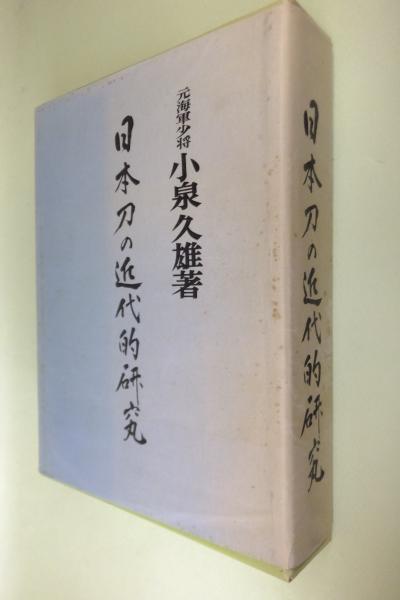 元海軍少将 小泉久雄著
日本刀の近代的研究
日本刀の近代的研究